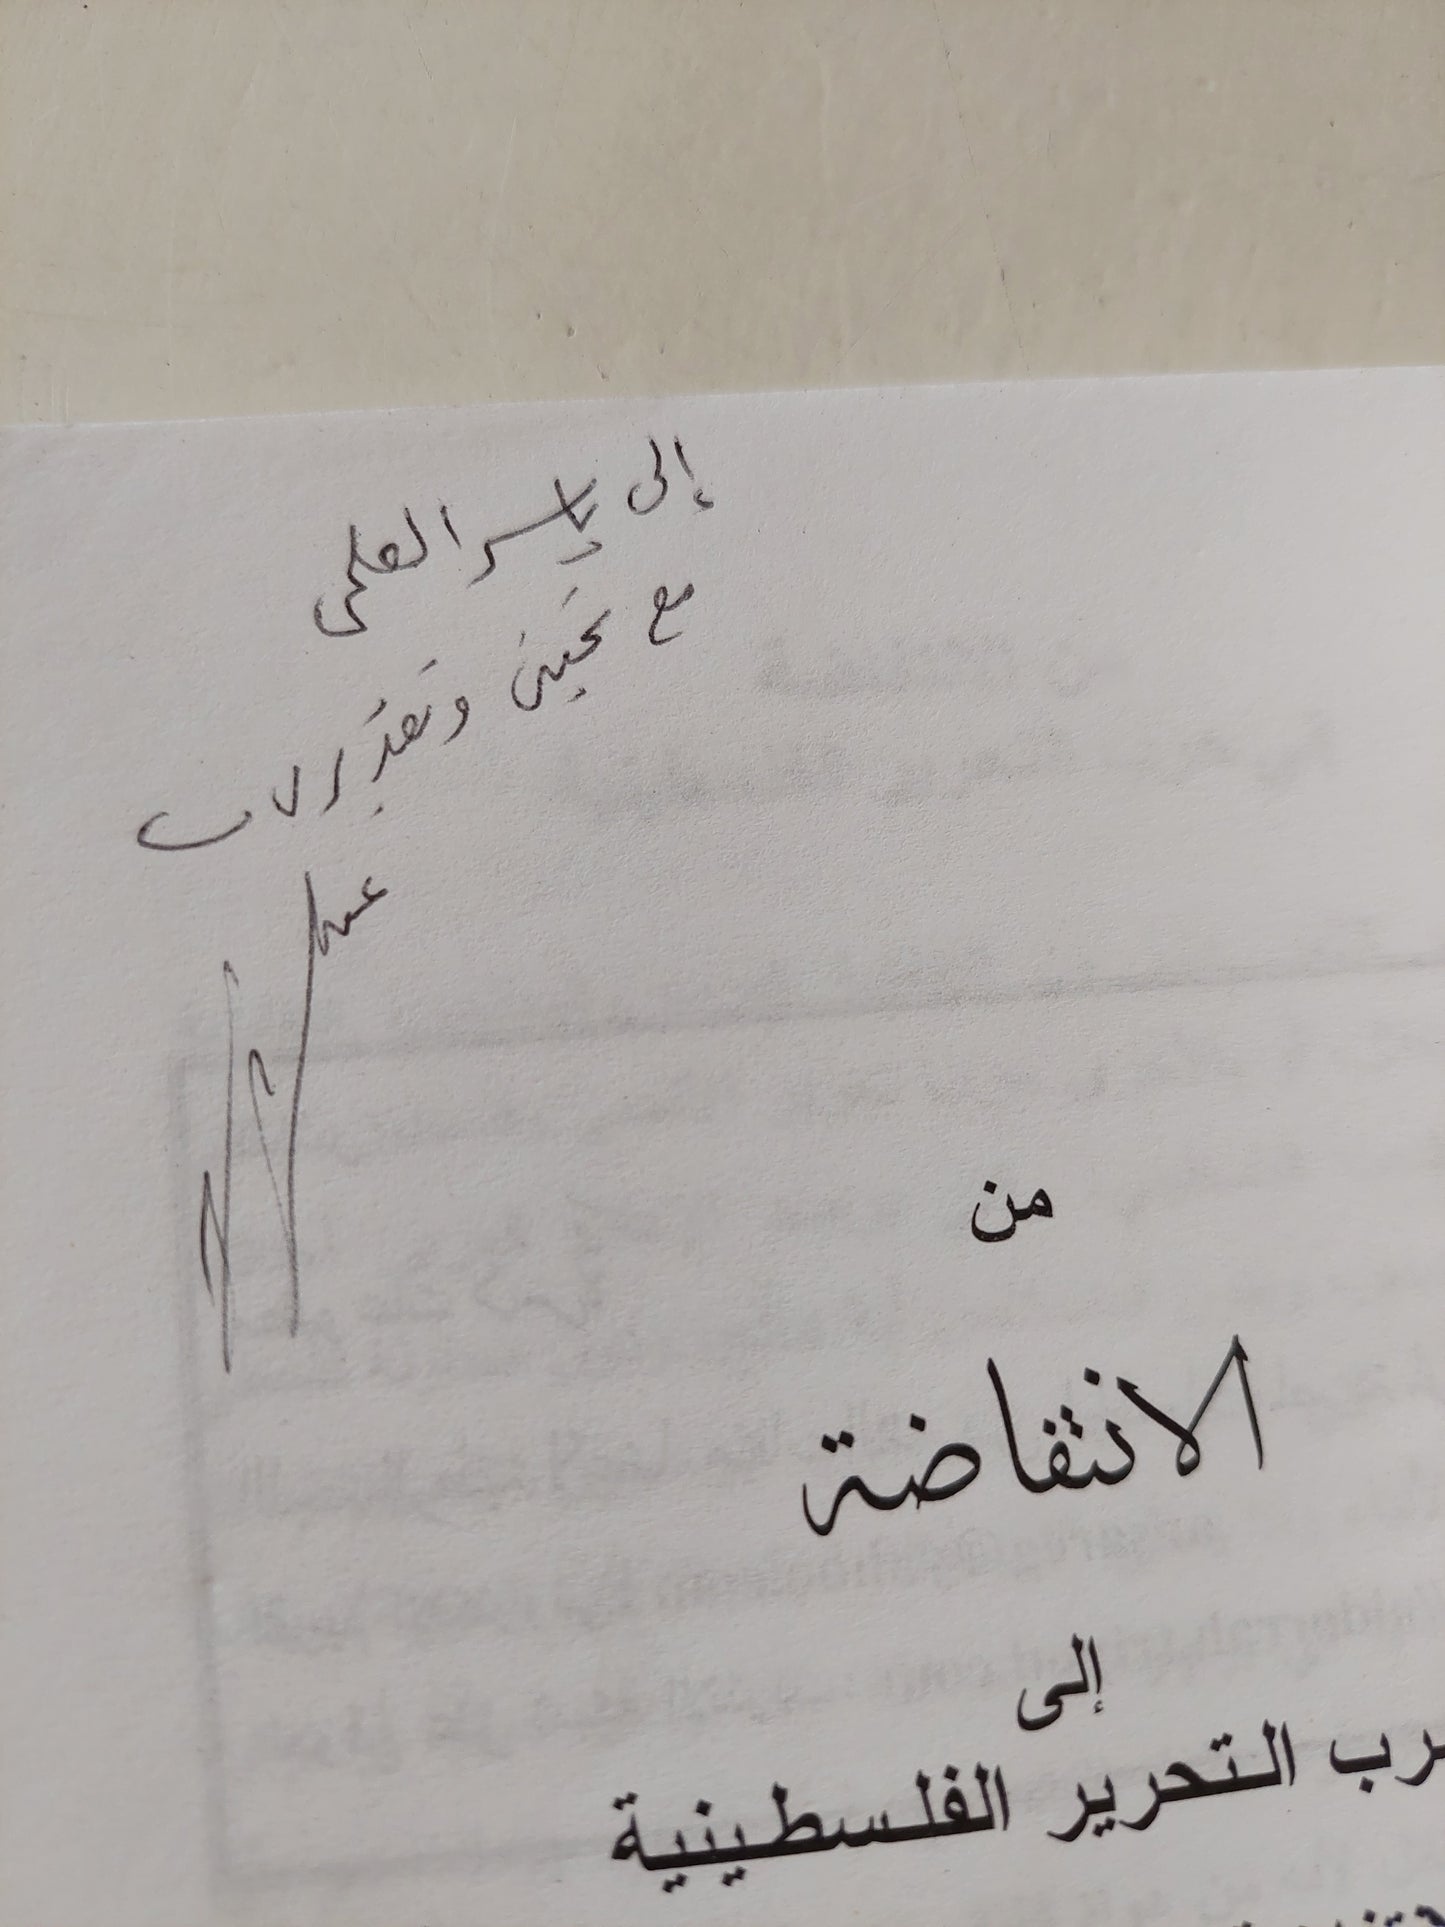 إلى ياسر العلمى
مع تحيتى وتقديرى
من
الانتفاضة
إلى
رب التحرير الفلسطينية